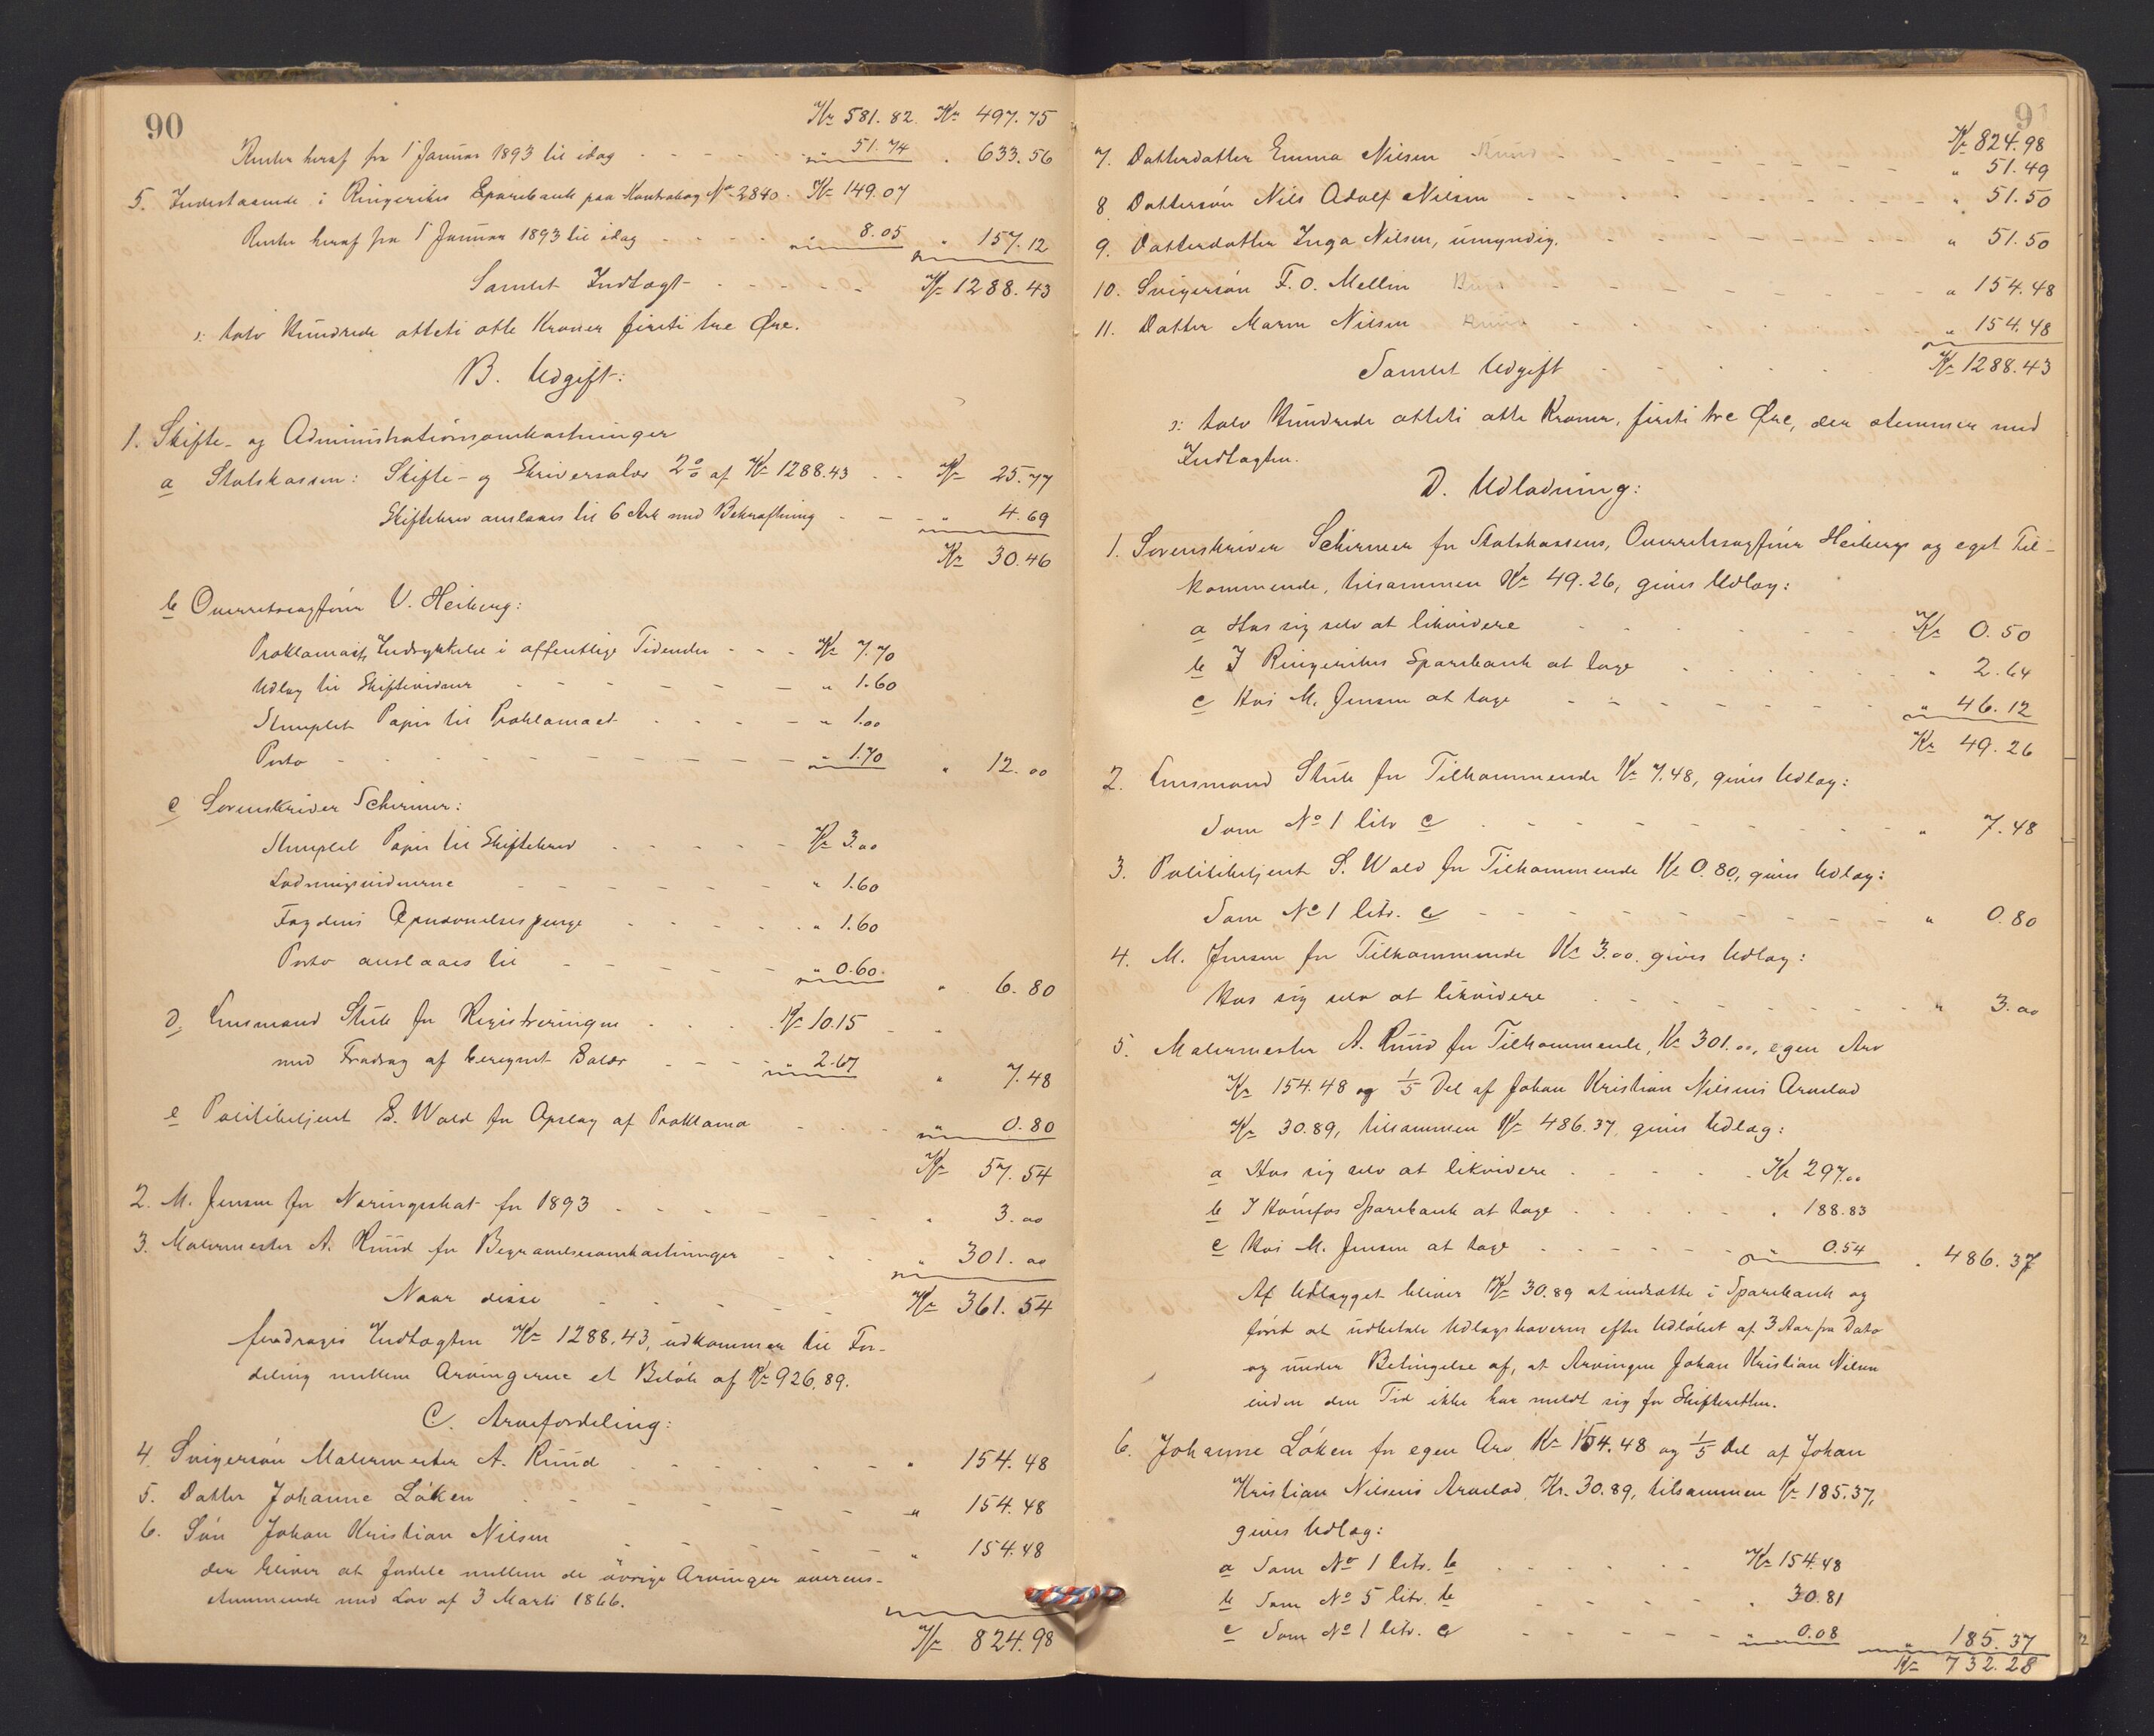 90
Kr 581.82. Kr 497.75
Renter heraf fra 1 Januar 1893 til idag - - - " 51.74 " 633.56
5. Indestaaende i Ringerikes Sparebank paa Kontrabog No 2840. Kr 149.07
Renter heraf fra 1 Januar 1893 til idag - - - " 8.05 " 157.12
Samlet Indtægt - - - Kr 1288.43
ɔ: tolv Hundrede otteti otte Kroner firti tre Øre.
B. Udgift:
1. Skifte- og Administrationsomkostninger
a Statskassen: Skifte- og Skriversalær 2 % af Kr 1288.43 - - Kr 25.77
Skiftebrev anslaaes til 6 Ark med Bekræftning - - " 4.69
Kr 30.46
b Overretssagfører V. Heiberg:
Proklamaets Indrykkelse i offentlige Tidender - - - Kr 7.70
Udlæg til Skiftevidner - - - " 1.60
Stemplet Papir til Proklamaet - - - " 1.00
Porto - - - " 1.70 " 12.00
c Sorenskriver Schirmer:
Stemplet Papir til Skiftebrev - - - Kr 3.00
Lodningsvidnerne - - - " 1.60
Fogdens Opnævnelsespenge - - - " 1.60
Porto anslaaes til - - - " 0.60. " 6.80
d, Lensmand Stub for Registreringen - - - Kr 10.15
med Fradrag af beregnet Salær - - - " 2.67 " 7.48
e Politibetjent S. Wold for Opslag af Proklama - - - " 0.80
Kr 57.54
2. M. Jensen for Næringsskat for 1893 - - - " 3.00
3. Malermester A. Ruud for Begravelsesomkostninger - - - " 301.00
Naar disse - - - Kr 361.54
fradrages Indtægten Kr 1288.43, udkommer til For-
deling mellem Arvingerne et Beløb af Kr 926.89.
C. Arvefordeling:
4. Svigersøn Malermester A. Ruud - - - " 154.48
5. Datter Johanne Løken - - - " 154.48
6. Søn Johan Kristian Nilsen - - - " 154.48
der bliver at fordele mellem de øvrige Arvinger overens-
stemmende med Lov af 3 Marts 1866.
Kr 824.98
91
Kr 824.98
7. Datterdatter Emma Nilsen Ruud - - - " 51.49
8. Dattersøn Nils Adolf Nilsen - - - " 51.50
9. Datterdatter Inga Nilsen, umyndig. - - - " 51.50
10. Svigersøn F. O. Mellin Ruud - - - " 154.48
11. Datter Maren Nilsen Ruud - - - " 154.48
Samlet Udgift - - - Kr 1288.43
ɔ: tolv Hundrede otteti otte Kroner, firti tre Øre, der stemmer med
Indtægten.
D. Udlodning:
1. Sorenskriver Schirmer for Statskassens, Overretssagfører Heibergs og eget Til-
kommende, tilsammen Kr 49.26, gives Udlæg:
a Hos sig selv at likvidere - - - Kr 0.50
b I Ringerikes Sparebank at tage - - - " 2.64
c Hos M. Jensen at tage - - - " 46.12
Kr 49.26
2. Lensmand Stub for Tilkommende Kr 7.48, gives Udlæg:
Som No 1 litr c - - - " 7.48
3. Politibetjent S. Wold for Tilkommende Kr 0.80, gives Udlæg:
Som No 1 litr. c - - - " 0.80
4. M. Jensen for Tilkommende Kr 3.00. gives Udlæg:
Hos sig selv at likvidere - - - " 3.00
5. Malermester A. Ruud for Tilkommende, Kr 301.00, egen Arv
Kr 154.48 og 1/5 Del af Johan Kristian Nilsens Arvelod
Kr 30.89, tilsammen Kr 486.37, gives Udlæg:
a Hos sig selv at likvidere - - - Kr 297.00
b I Hønefos Sparebank at tage - - - " 188.83
c Hos M. Jensen at tage - - - " 0.54 " 486.37
Af Udlægget bliver Kr 30.89 at indsætte i Sparebank og
først at udbetale Udlægshaveren efter Udløbet af 3 Aar fra Dato
og under Betingelse af, at Arvingen Johan Kristian Nilsen
inden den Tid ikke har meldt sig for Skifteretten.
6. Johanne Løken for egen Arv, Kr 154.48 og 1/5 Del af Johan
Kristian Nilsens Arvelod, Kr. 30.89, tilsammen Kr 185.37,
gives Udlæg:
a Som No 1 litr. b - - - Kr 154.48
b Som No 5 litr. b - - - " 30.81
c Som No 1 litr. c - - - " 0.08 " 185.37
Kr 732.28